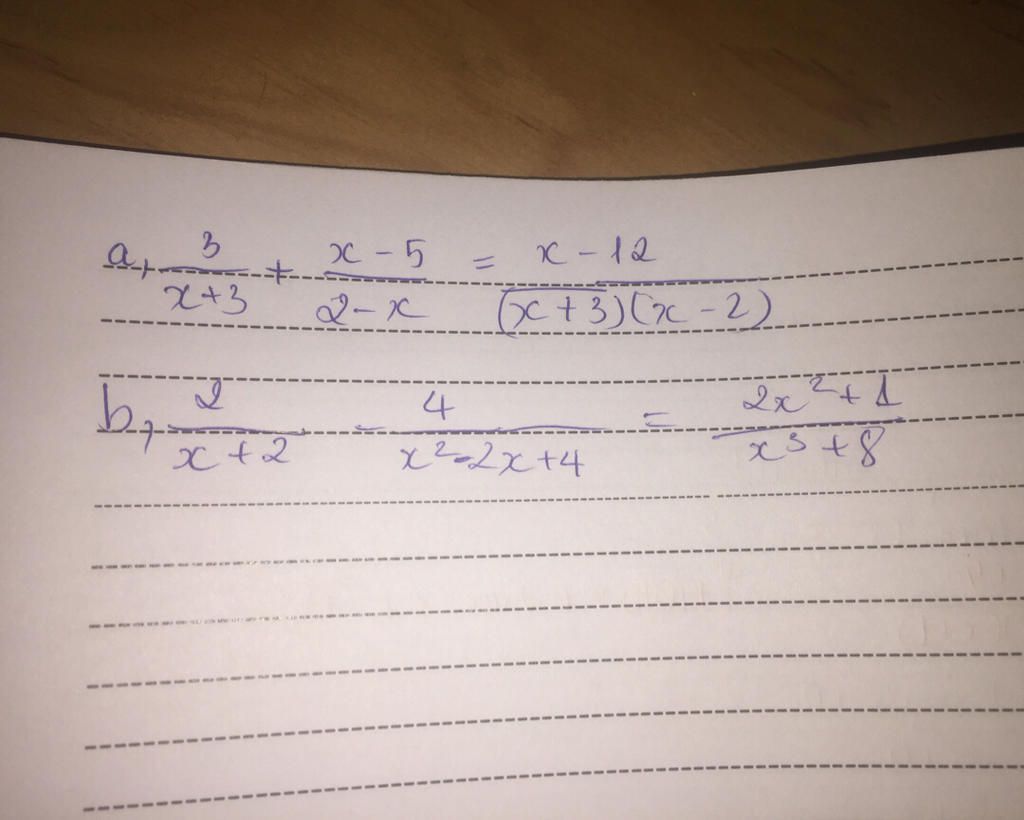 a, 3/(x+3) + (x-5)/(2-x) = (x-12)/((x+3)(x-2))
b, 2/(x+2) - 4/(x²-2x+4) = (2x²+1)/(x³+8)